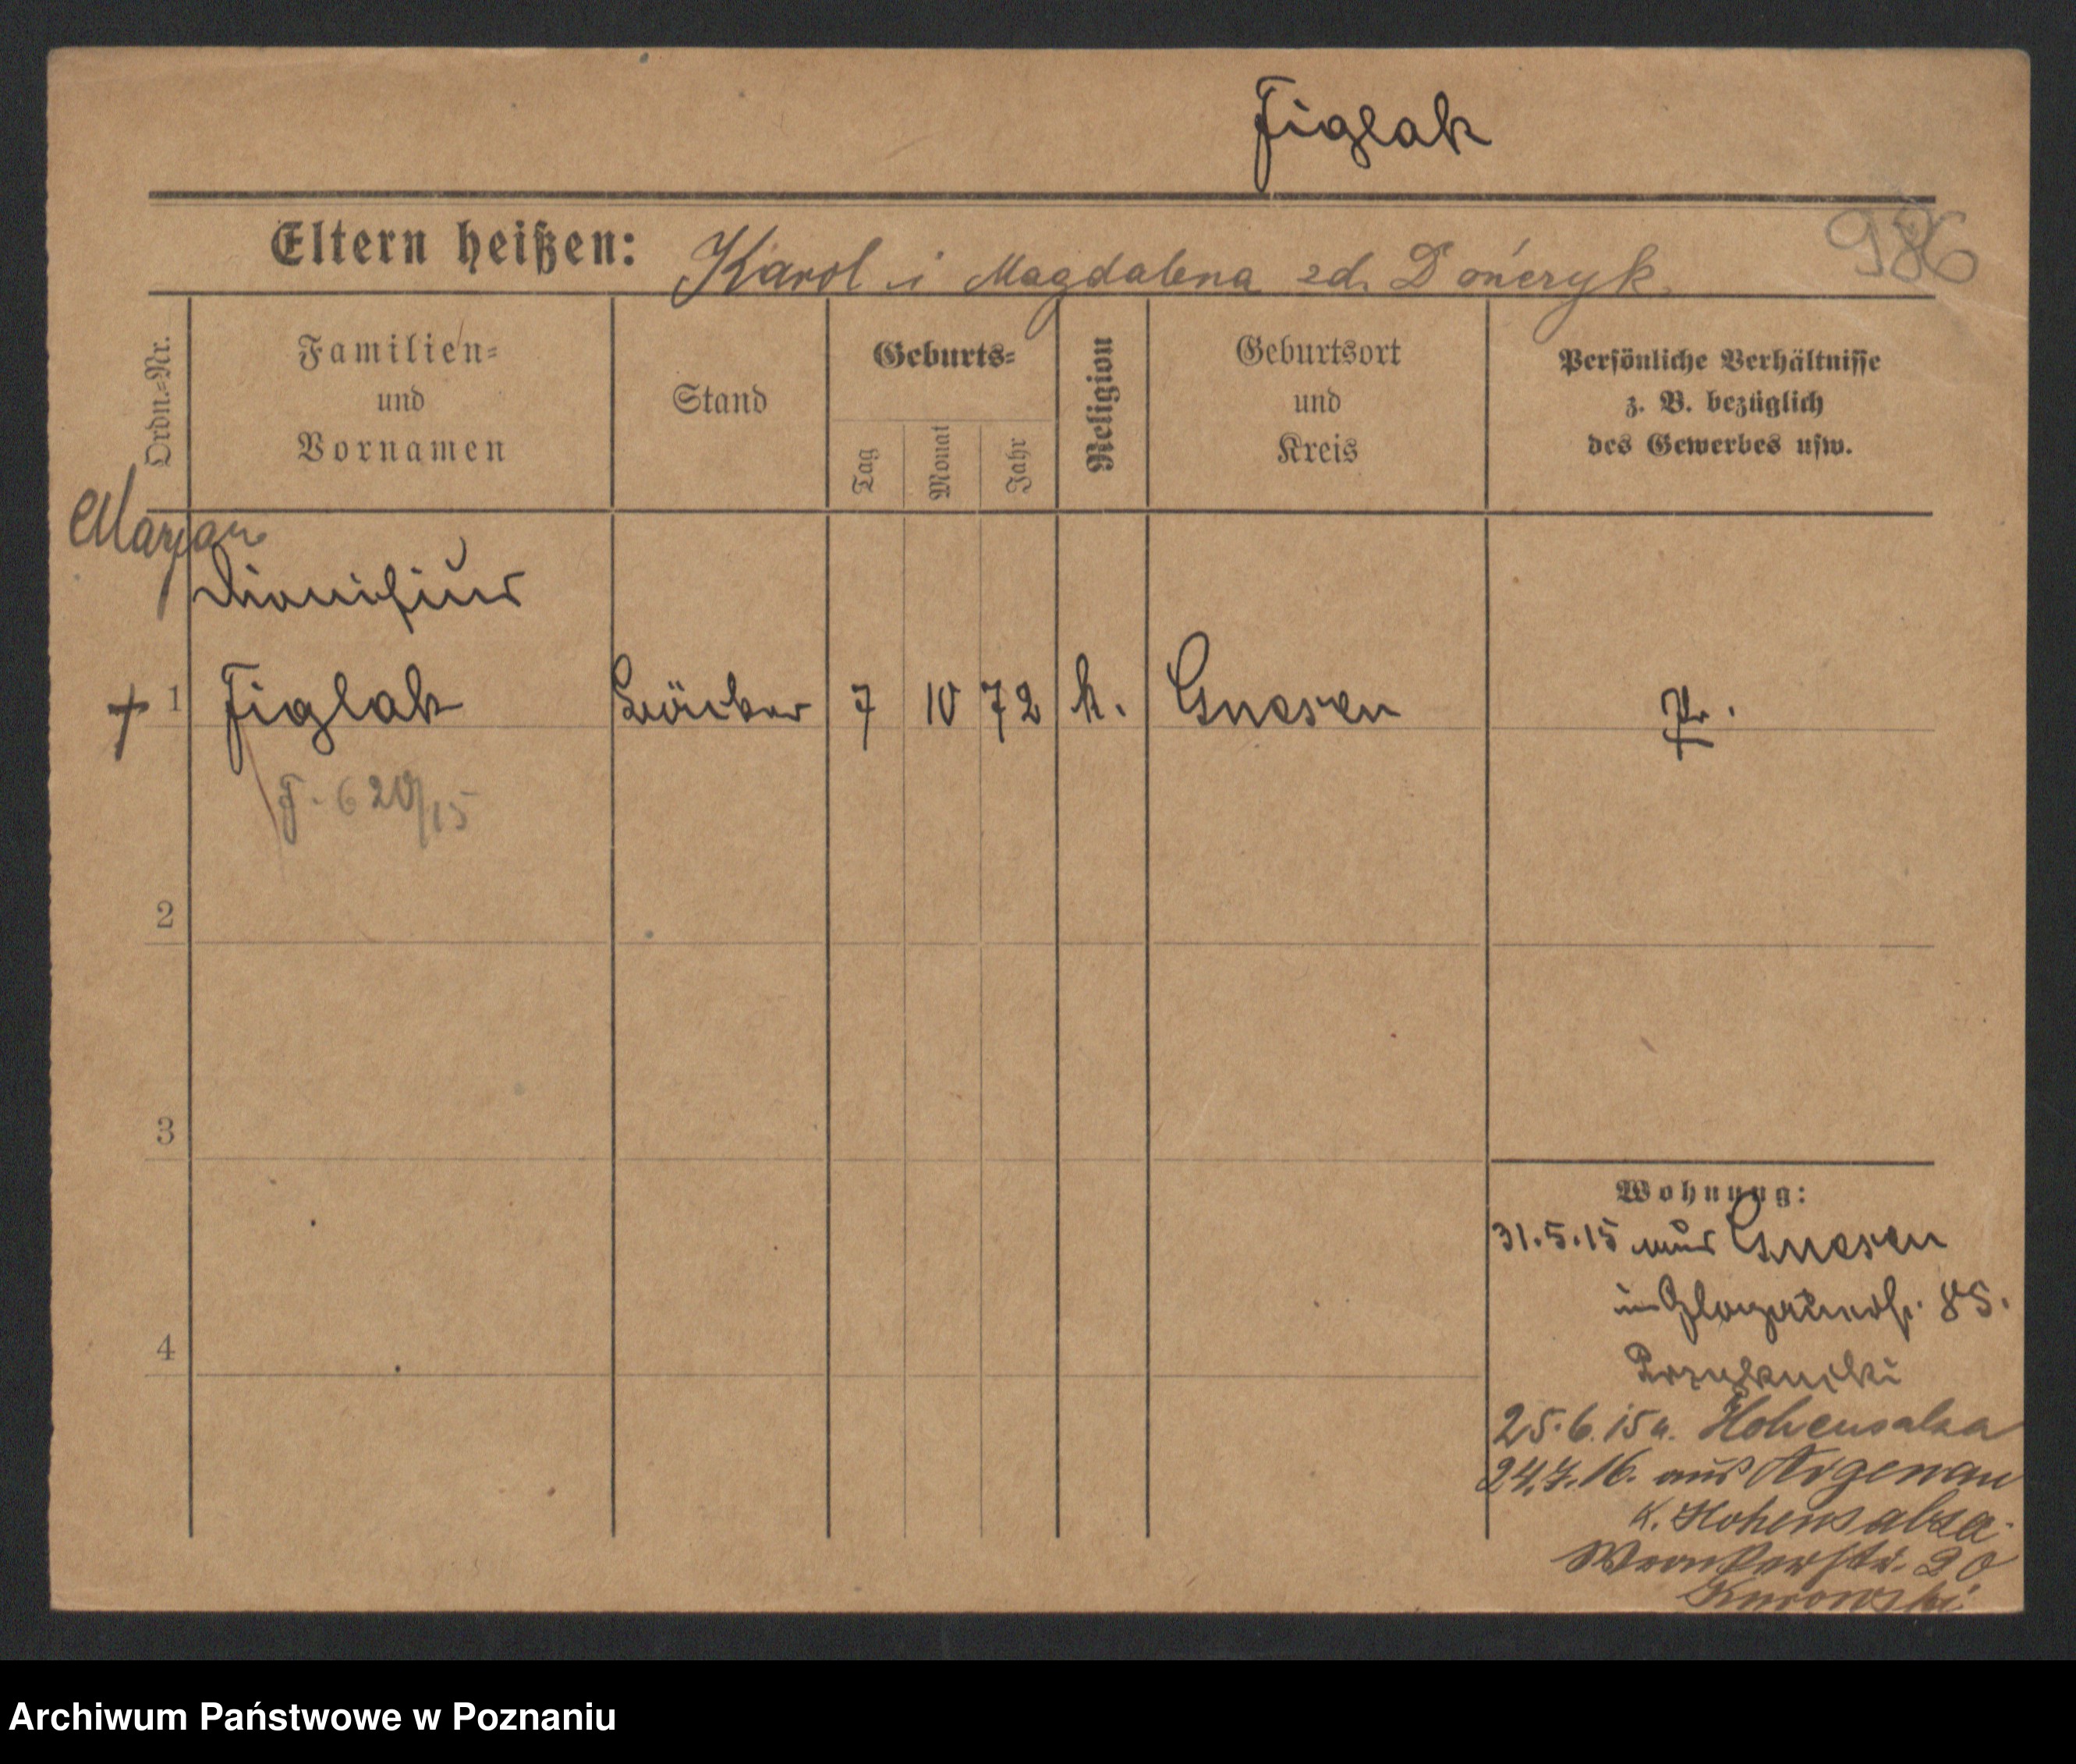 Figlak
Eltern heißen: Karol i Magdalena zd. Dończyk.
986
Ordn.-Nr.
Familien-
und
Vornamen
Stand
Geburts-
Tag
Monat
Jahr
Religion
Geburtsort
und
Kreis
Persönliche Verhältnisse
z. B. bezüglich
des Gewerbes usw.
Marjan
Dionisius
† 1 Figlak Bäcker 7 10 72 k. Gnesen Pr.
F. 620/15
2
3
4
Wohnung:
31.5.15 aus Gnesen
in Glogauerstr. 85.
25.6.15 n. Hohensalza
24.7.16. aus Argenau
K. Hohensalza
Wronkerstr. 20
Kurowski
Archiwum Państwowe w Poznaniu